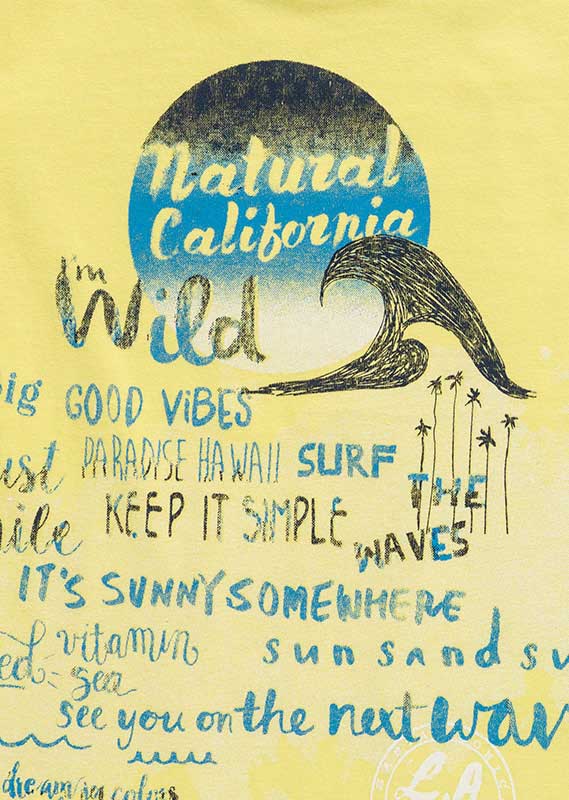 Natural
California
I'm
Wild
GOOD VIBES
PARADISE HAWAII SURF THE
KEEP IT SIMPLE WAVES
IT'S SUNNY SOMEWHERE
vitamin sea
sun sand
see you on the next
dream in colors
LA